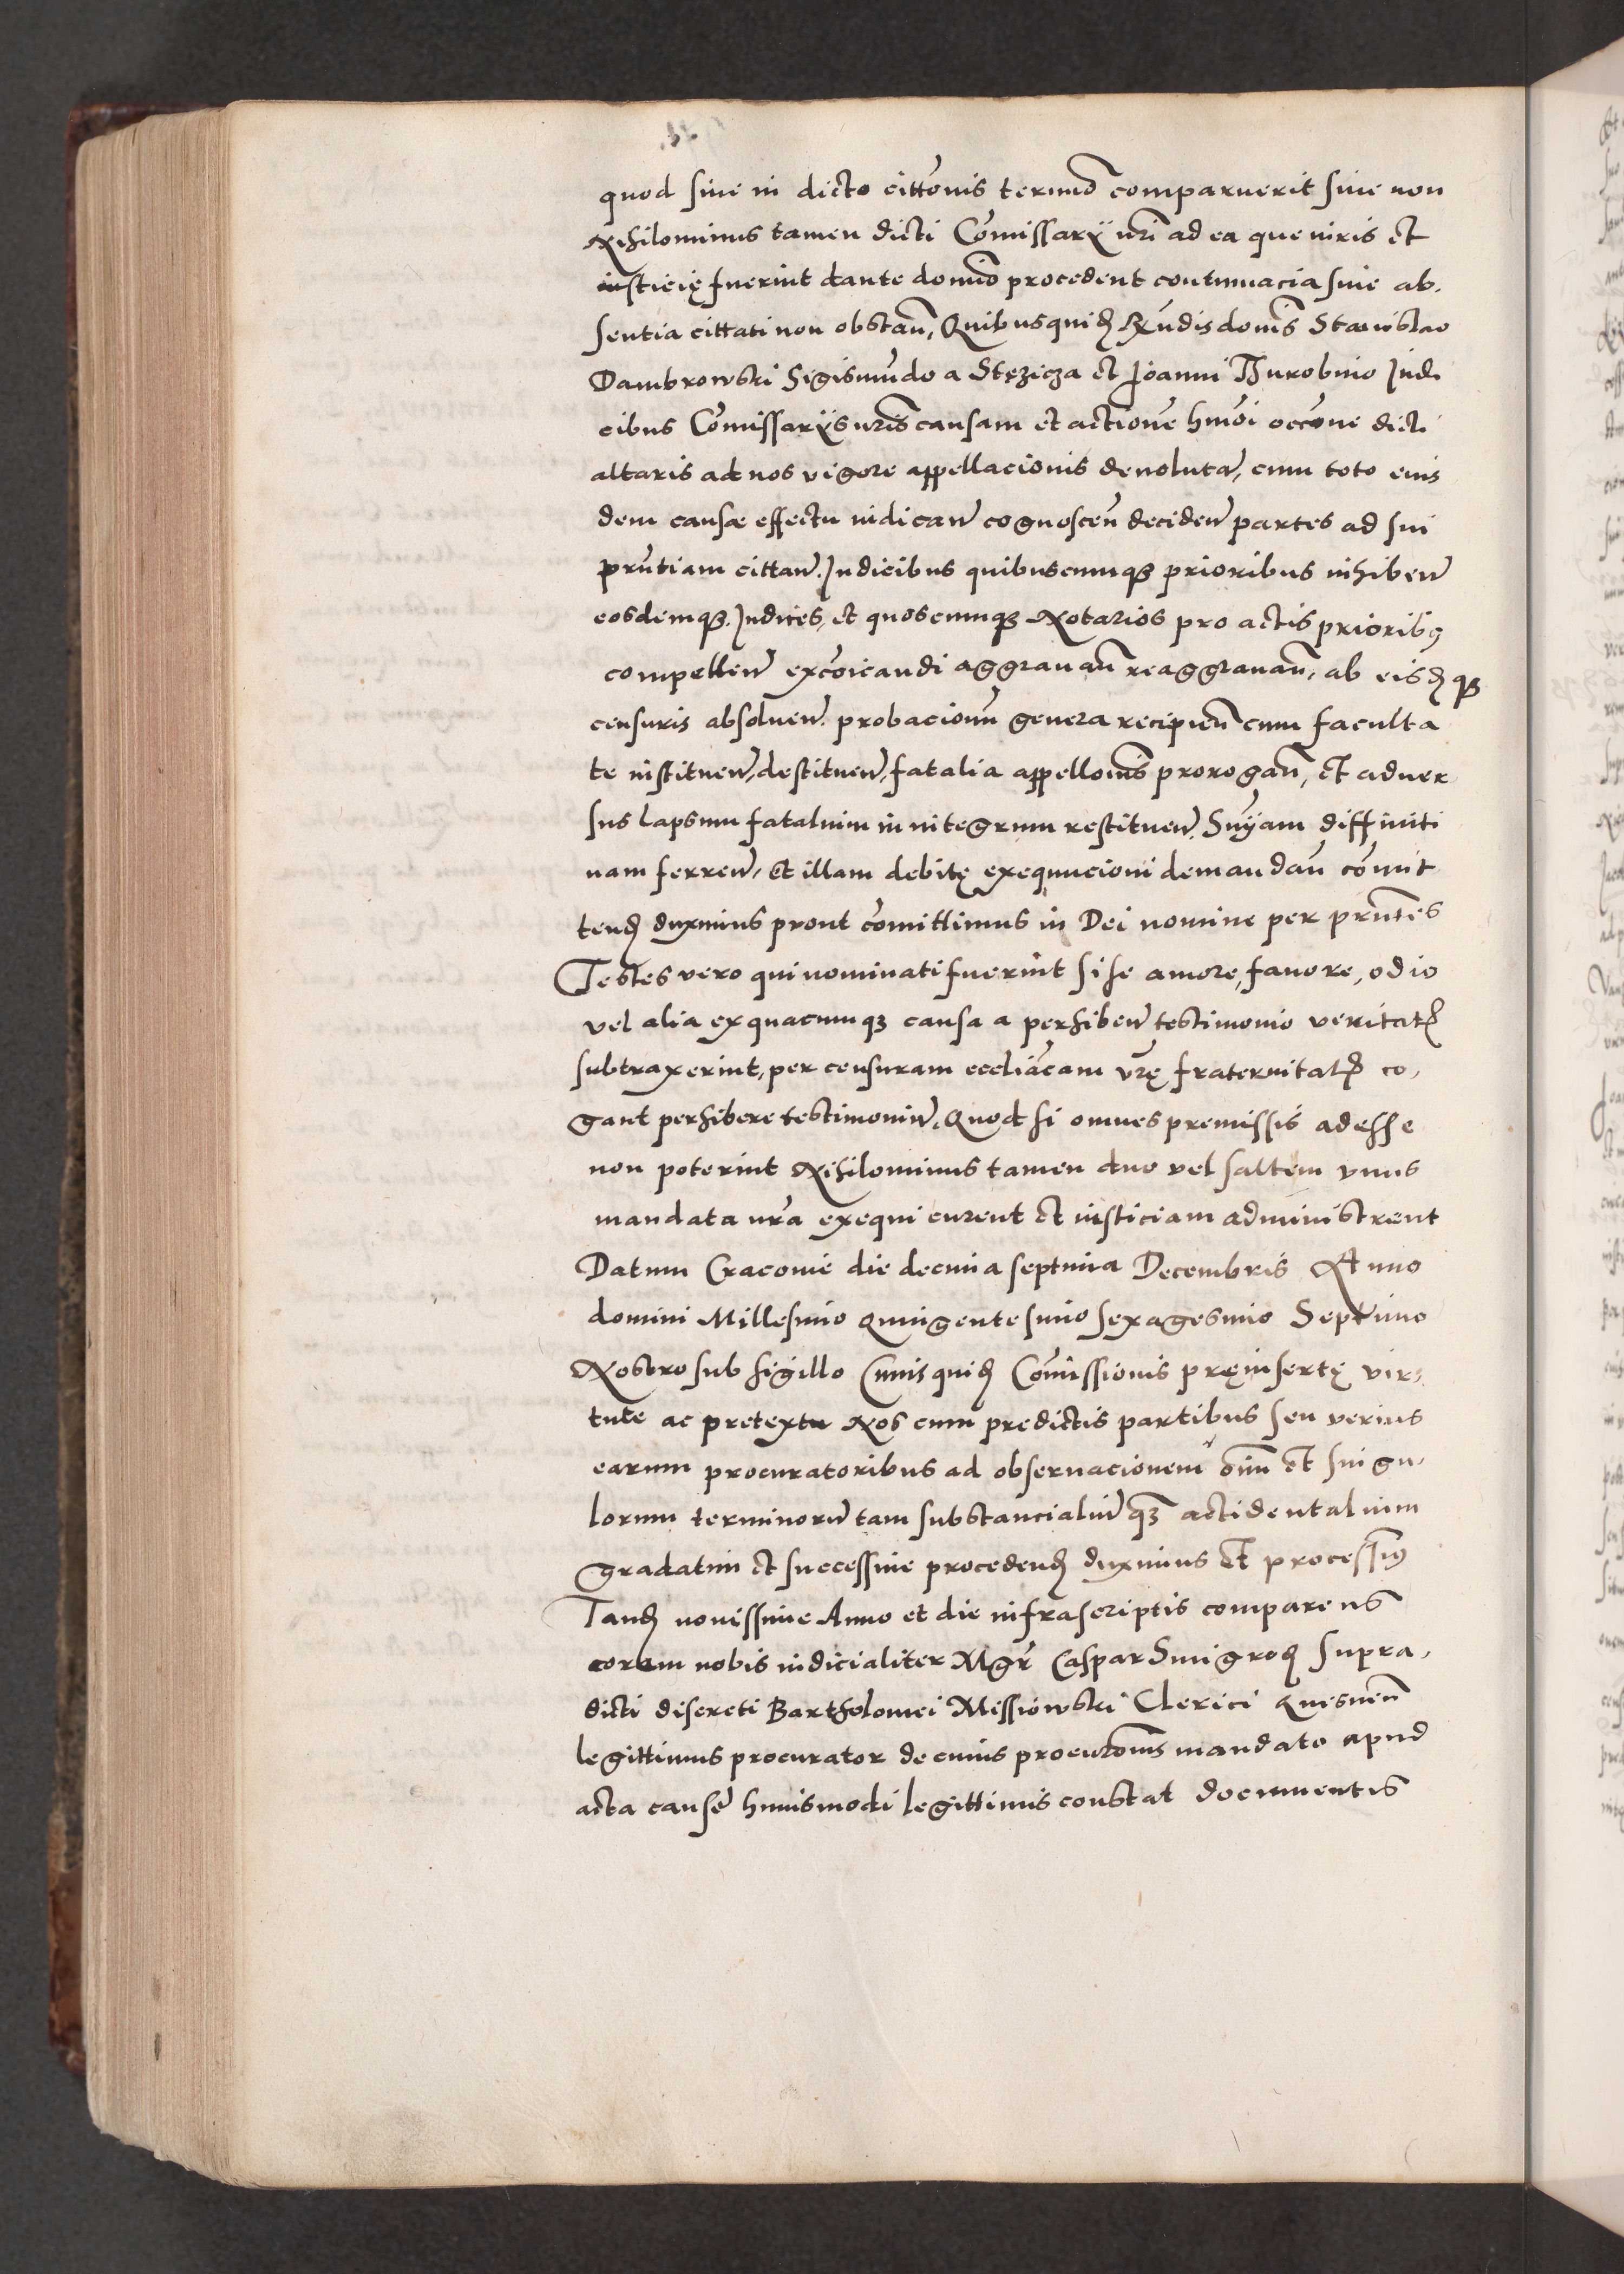 quod siue in dicto cittõnis terminõ comparuerit siue non
Nihilominus tamen dicti Comissarÿ nri ad ea que iuris et
iusticię fuerint dante domino procedent contumacia siue ab,
sentia cittati non obstan̄, Quibusquid Rndis donis Stanislao
Dambrowski Sigismundo a Stęzicza et Joanni Thurobino Judi
cibus Comissarÿs nris causam et actionẽ hmõi occõne dicti
altaris ad nos vigore appellacionis deuoluta, cum toto eius
dem causæ effectu iudicañ cognosceñ decideñ partes ad sui
prñtiam cittañ. Judicibus quibuscumqz prioribus inhibeñ
eosdemqz. Judices, et quoscumqz Notarios pro actis prioribꝯ
compelleñ excõicandi aggrauañ reaggrauañ, ab eisdqz
censuris absolueñ. probacionũ genera recipieñ cum faculta
te instituen̄, destitueñ, fatalia appellonis prorogañ, et aduer
sus lapsum fatalium in integrum restitueñ. Snÿam diffiniti
uam ferreñ, Et illam debitę exequucioni demandañ cõmit
tend duximus prout cõmittimus in Dei nomine per prñtes
Testes vero qui nominati fuerint si se amore, fauore, odio
vel alia ex quacumqz causa a perhibeñ testimonio veritatꝭ
subtraxerint, per censuram eccliãcam vrę fraternitatꝭ co,
gant perhibere testimoniũ. Quod si omnes premissis adesse
non poterint Nihilominus tamen duo vel saltem vnus
mandata nrã exequi curent et iusticiam administrent
Datum Cracouiẽ die decima septima Decembris Anno
domini Millesimo quingentesimo sexagesimo Septimo
Nostro sub sigillo Cuius quid Comissionis pręinsertę vir,
tute ac pretextu Nos cum predictis partibus seu verius
earum procuratoribus ad obseruacionem oĩm et singu,
lorum terminorũ tam substancialiũ qz actidentalium
gradatim et successiue procedend duximus Et processimꝯ
Tand nouissime Anno et die infrascriptis comparens
coram nobis iudicialiter Mgr̃ Caspar Smigrod supra,
dicti discreti Bartholomei Missiowski Clerici Quisuen̄
legittimus procurator de cuius procurõnis mandato apud
acta causę huiusmodi legittimis constat documentis